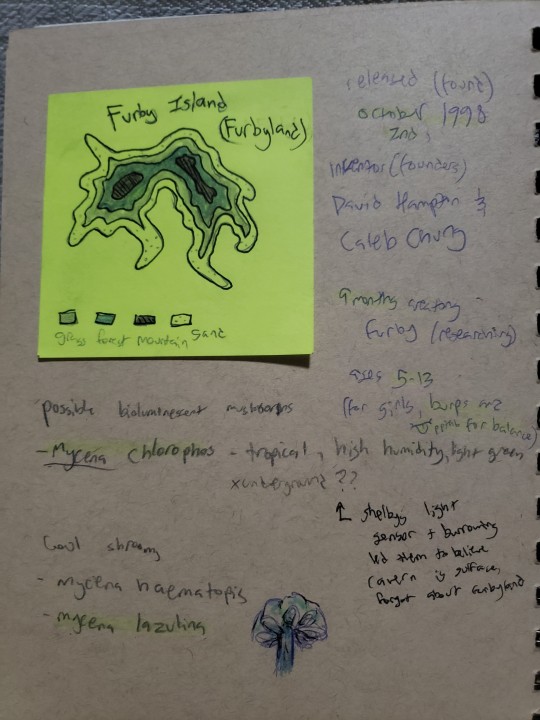 Furby Island
(Furbyland)
grass forest mountain sand
released (found)
october 1998
2nd,
inventor (founders)
David Hampton &
Caleb Chung
9 months creating
Furby (researching)
ages 5-13
(for girls, burps and
for balance)
possible bioluminescent mushrooms
- Mycena chlorophos - tropical, high humidity, light green
x underground ??
↑ shelby light
sensor + burrowing
led them to believe
cavern is surface,
forgot about furbyland
Cool shrooms
- mycena haematopis
- mycena lazulina